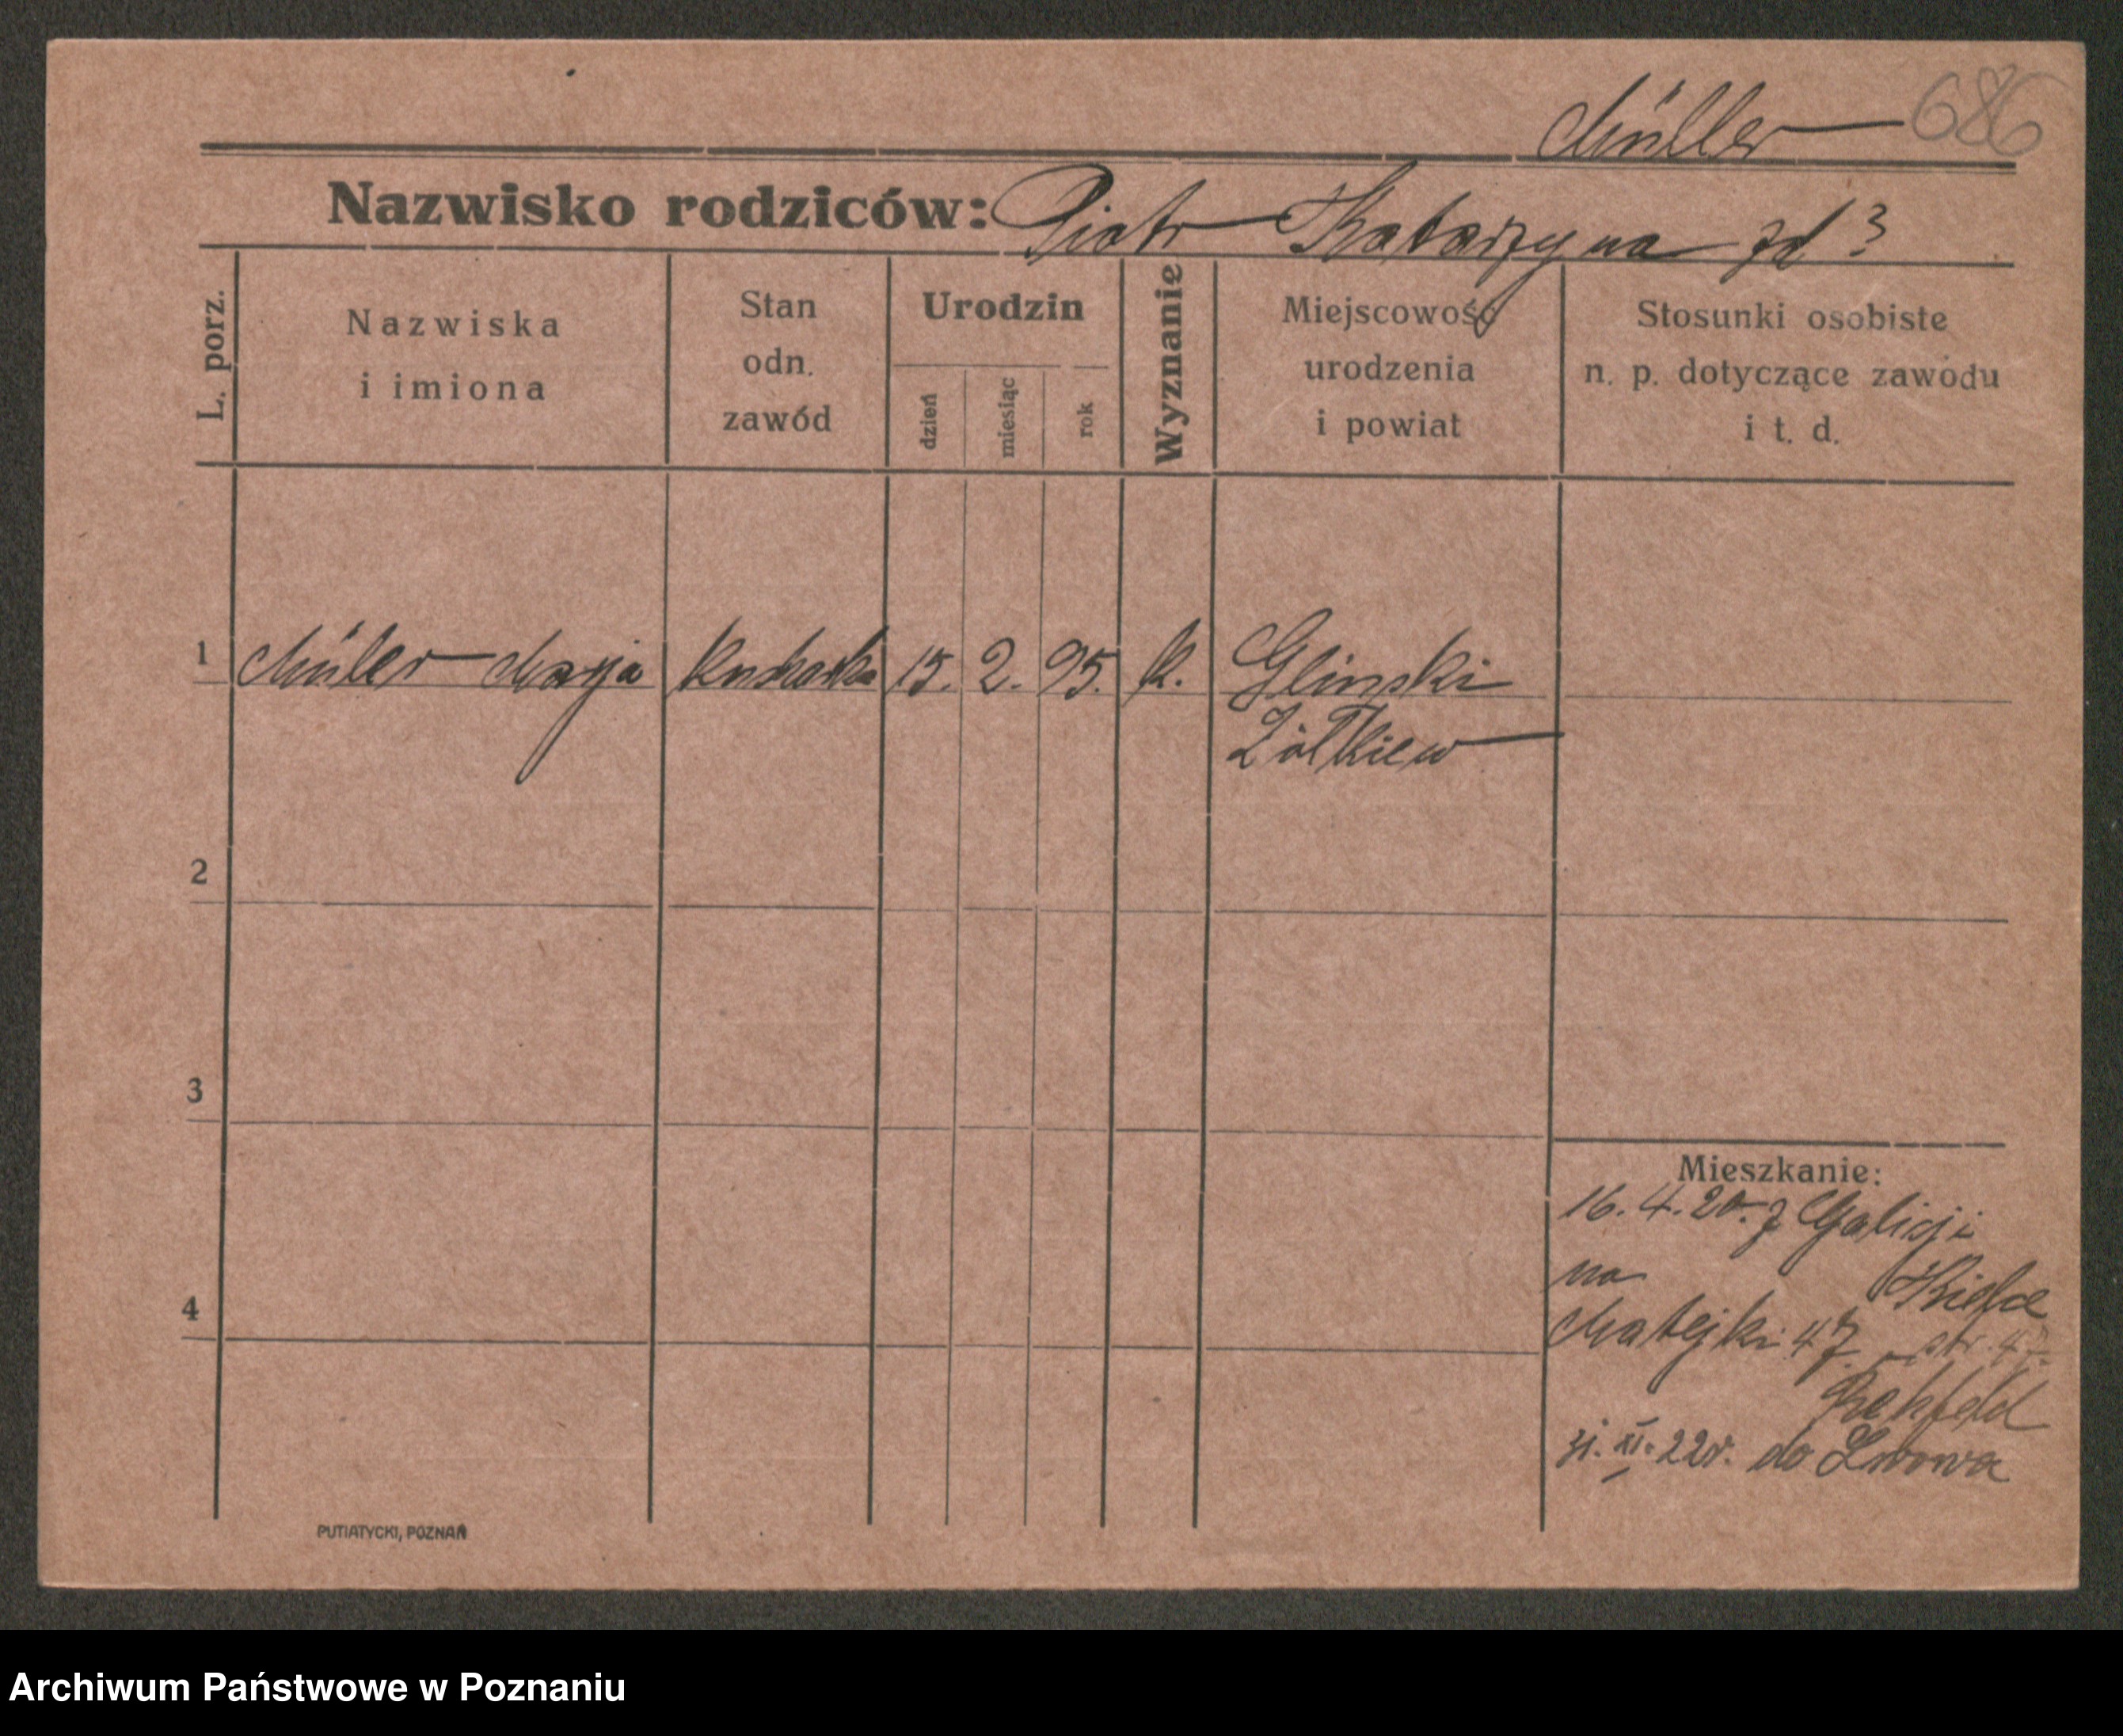 Müller 686
Nazwisko rodziców: Piotr Katarzyna zd ?
L. porz.
Nazwiska
i imiona
Stan
odn.
zawód
Urodzin
dzień
miesiąc
rok
Wyznanie
Miejscowość
urodzenia
i powiat
Stosunki osobiste
n. p. dotyczące zawodu
i t. d.
1 Müler Marja Kucharka 15. 2. 95. k. Glinski
Żółkiew
2
3
4
Mieszkanie:
16. 4. 20. z Galicji
na
Matejki 47. str. 47.
31. XI. 22r. do Lwowa
PUTIATYCKI, POZNAŃ
Archiwum Państwowe w Poznaniu